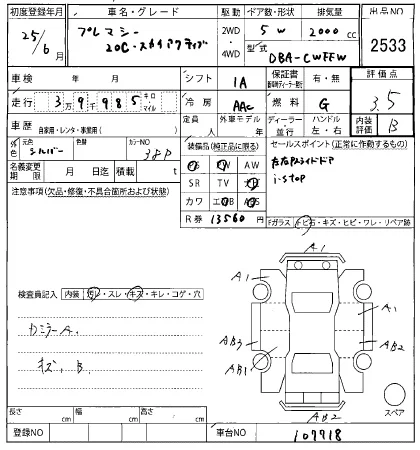 初度登録年月 車名・グレード 駆動 ドア数・形状 排気量 出品NO
25/6 プレマシー 2WD 5 W 2000 cc 2533
月 20C-スカイアクティブ 4WD 型式 DBA-CWFFW
車検 年 月 シフト IA 保証書 有・無 評価点
走行 3万9千985 キロ マイル 冷房 AAC 燃料 G 3.5
車歴 自家用・レンタ・事業用( ) 定員 外車モデル ディーラー 並行 ハンドル 左・右 内装評価 B
外色 元色 シルバー 色替 カラーNO 38P 装備品(純正品に限る) セールスポイント(正常に作動するもの)
名義変更期限 月 日迄 積載 t PS PW AW 左右スライドドア
注意事項(欠品・修復・不具合箇所および状態) SR TV ナビ i-stop
カワ エアB ABS
R券 13560 円 Fガラス トビ石・キズ・ヒビ・ワレ・リペア跡
A1
A1
検査員記入 内装 汚レ・スレ・キズ・キレ・コゲ・穴 A1
カミラーA.
AB3 AB2
キズ、B. AB1
AB2 スペア
長さ cm 幅 cm 高さ cm
登録NO 車台NO 107718